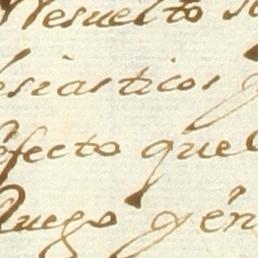 Resuelto
esiasticos
efecto que
Luego y en